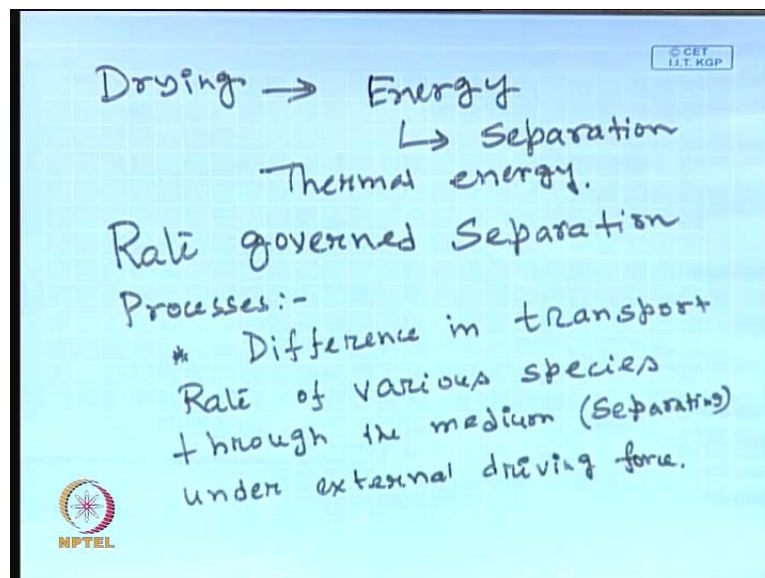 © CET
I.I.T. KGP
Drying → Energy
↳ Separation
Thermal energy.
Rate governed Separation
Processes:-
* Difference in transport
Rate of various species
through the medium (Separating)
under external driving force.
NPTEL